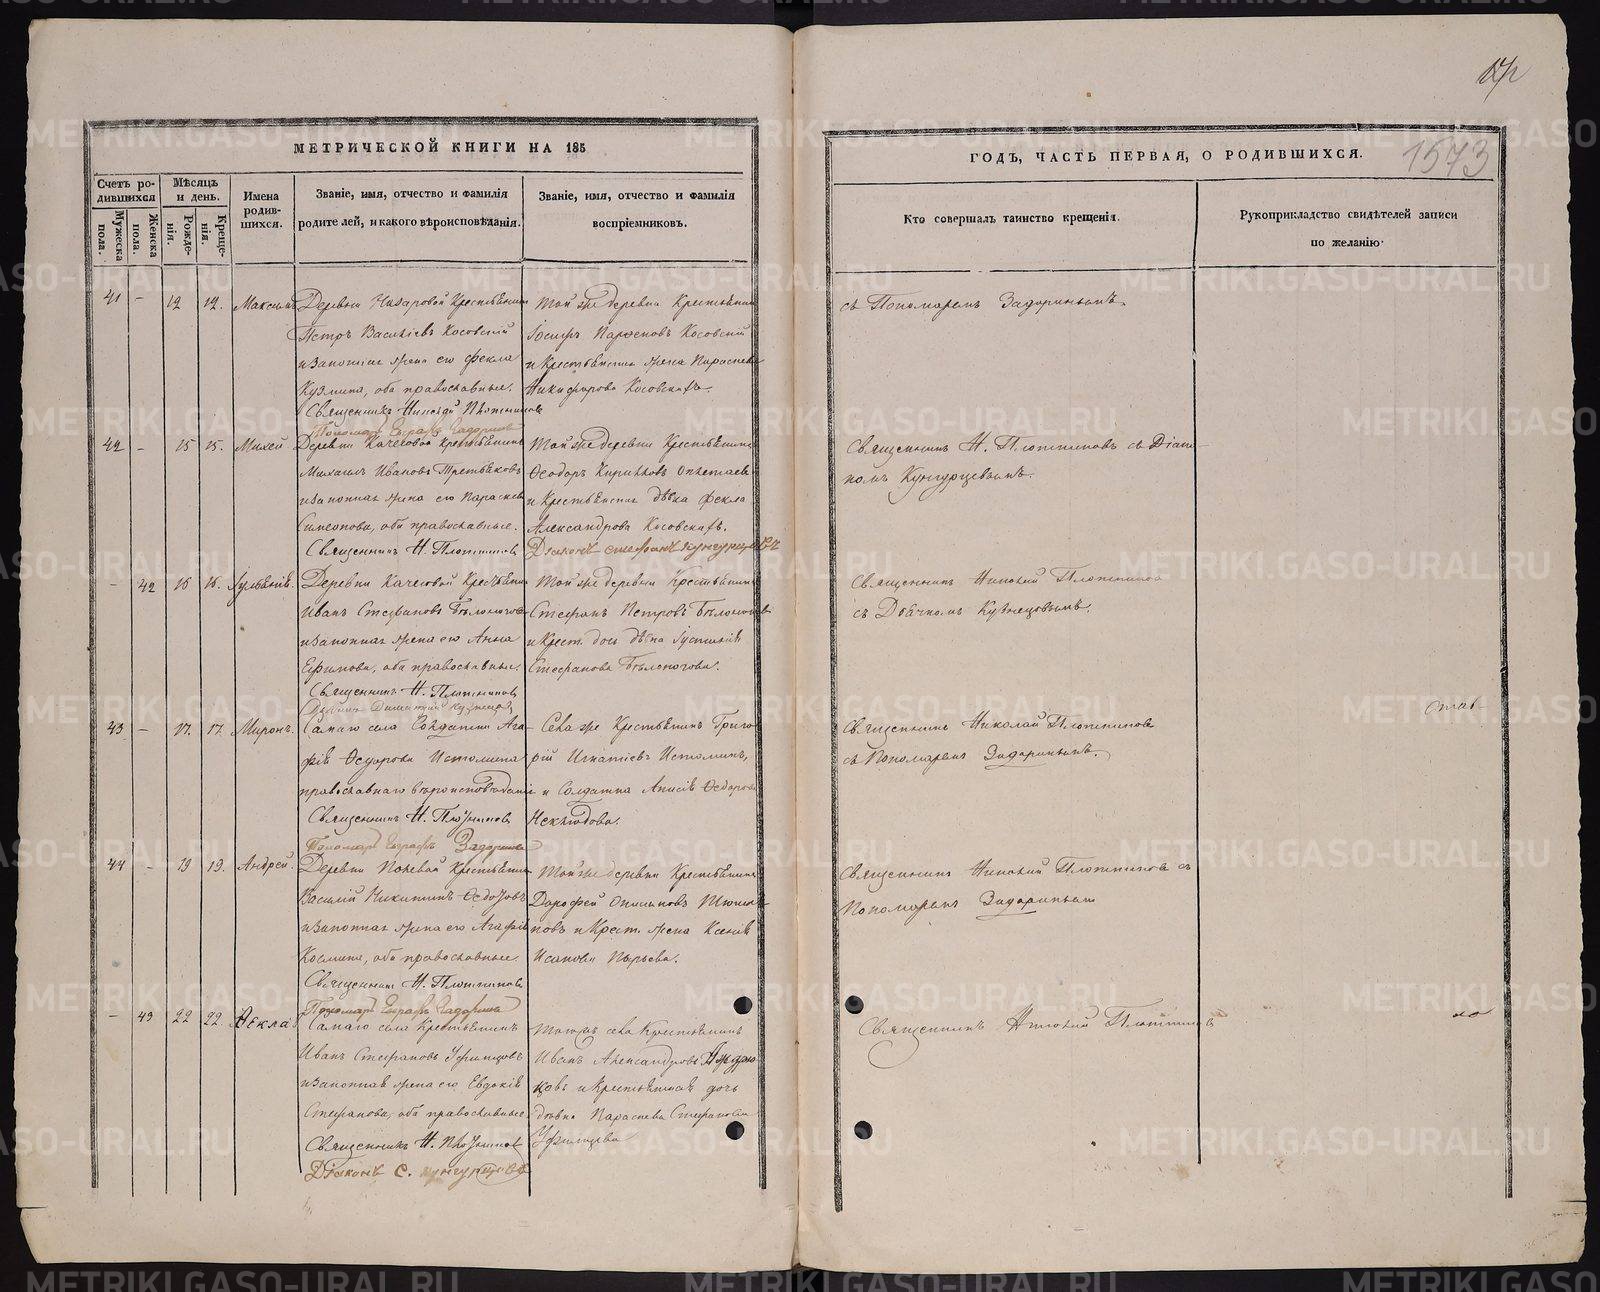 МЕТРИЧЕСКОЙ КНИГИ НА 185
Счетъ ро-
дившихся
Мужеска
пола.
Женска
пола.
Мѣсяцъ
и день.
Рожде-
нія.
Креще-
нія.
Имена
родив-
шихся.
Званіе, имя, отчество и фамилія
родителей, и какого вѣроисповѣданія.
Званіе, имя, отчество и фамилія
воспріемниковъ.
41 - 12 12. Максимъ
Деревни Назаровой Крестьянинъ
Петръ Василіевъ Косовскій
и законная жена его Фекла
Кузмина, оба православные.
Священникъ Николай Плотниковъ
Пономарь Евграфъ Задоринъ
Той же деревни Крестьянинъ
Іосифъ Парфеновъ Косовскій
и Крестьянская жена Параскева
Никифорова Косовскаѣ.
42 - 15 15. Михей
Деревни Качесовой Крестьянинъ
Михаилъ Ивановъ Третьяковъ
и законная жена его Параскева
Симеонова, оба православные.
Священникъ Н. Плотниковъ
Той же деревни Крестьянинъ
Ѳеодоръ Кириловъ
и Крестьянская дѣвка Фекла
Александрова Косовскаѣ.
Діаконъ Стефанъ Кунгурцевъ
- 42 16 16. Іуліаніѣ.
Деревни Качесовой Крестьянинъ
Иванъ Стефановъ Бѣлоноговъ
и законная жена его Анна
Ефимова, оба православные.
Священникъ Н. Плотниковъ
Дьячекъ Димитрій Кузнецовъ
Той же деревни Крестьянинъ
Стефанъ Петровъ Бѣлоноговъ
и Крест. дочь дѣвка Іустиніѣ
Стефанова Бѣлоногова.
43 - 17. 17. Миронъ.
Самаго села Солдатки Ага-
фіѣ Ѳедорова Истомина
православнаго вѣроисповѣданіѣ
Священникъ Н. Плотниковъ
Пономарь Евграфъ Задоринъ
Села же Крестьянинъ Григо-
рій Игнатіевъ Истоминъ,
и Солдатка Анисіѣ Ѳедорова
Неклюдова.
44 - 19 19. Андрей.
Деревни Полевой Крестьянинъ
Василій Никитинъ Ѳедотовъ
и законная жена его Агафіѣ
Козмина, оба православные.
Священникъ Н. Плотниковъ
Пономарь Евграфъ Задоринъ
Той же деревни Крестьянинъ
Дорофей
и Крест. жена Ксеніѣ
Исакова Пырьева.
- 43 22 22. Ѳекла
Самаго села Крестьянинъ
Иванъ Стефановъ Уфимцовъ
и законная жена его Евдокіѣ
Стефанова, оба православные.
Священникъ Н. Плотниковъ
Діаконъ С. Кунгурцевъ
Тогожъ села Крестьянинъ
Иванъ Александровъ
и Крестьянская дочь
дѣвка Параскева Стефанова
Уфимцева
ГОДЪ, ЧАСТЬ ПЕРВАЯ, О РОДИВШИХСЯ.
1573
Кто совершалъ таинство крещенія.
Рукоприкладство свидѣтелей записи
по желанію.
съ Пономаремъ Задоринымъ.
Священникъ Н. Плотниковъ съ Діако-
номъ Кунгурцевымъ.
Священникъ Николай Плотниковъ
съ Дьячкомъ Кузнецовымъ.
Священникъ Николай Плотниковъ
съ Пономаремъ Задоринымъ.
Священникъ Николай Плотниковъ съ
Пономаремъ Задоринымъ
Священникъ Николай Плотниковъ
METRIKI.GASO-URAL.RU